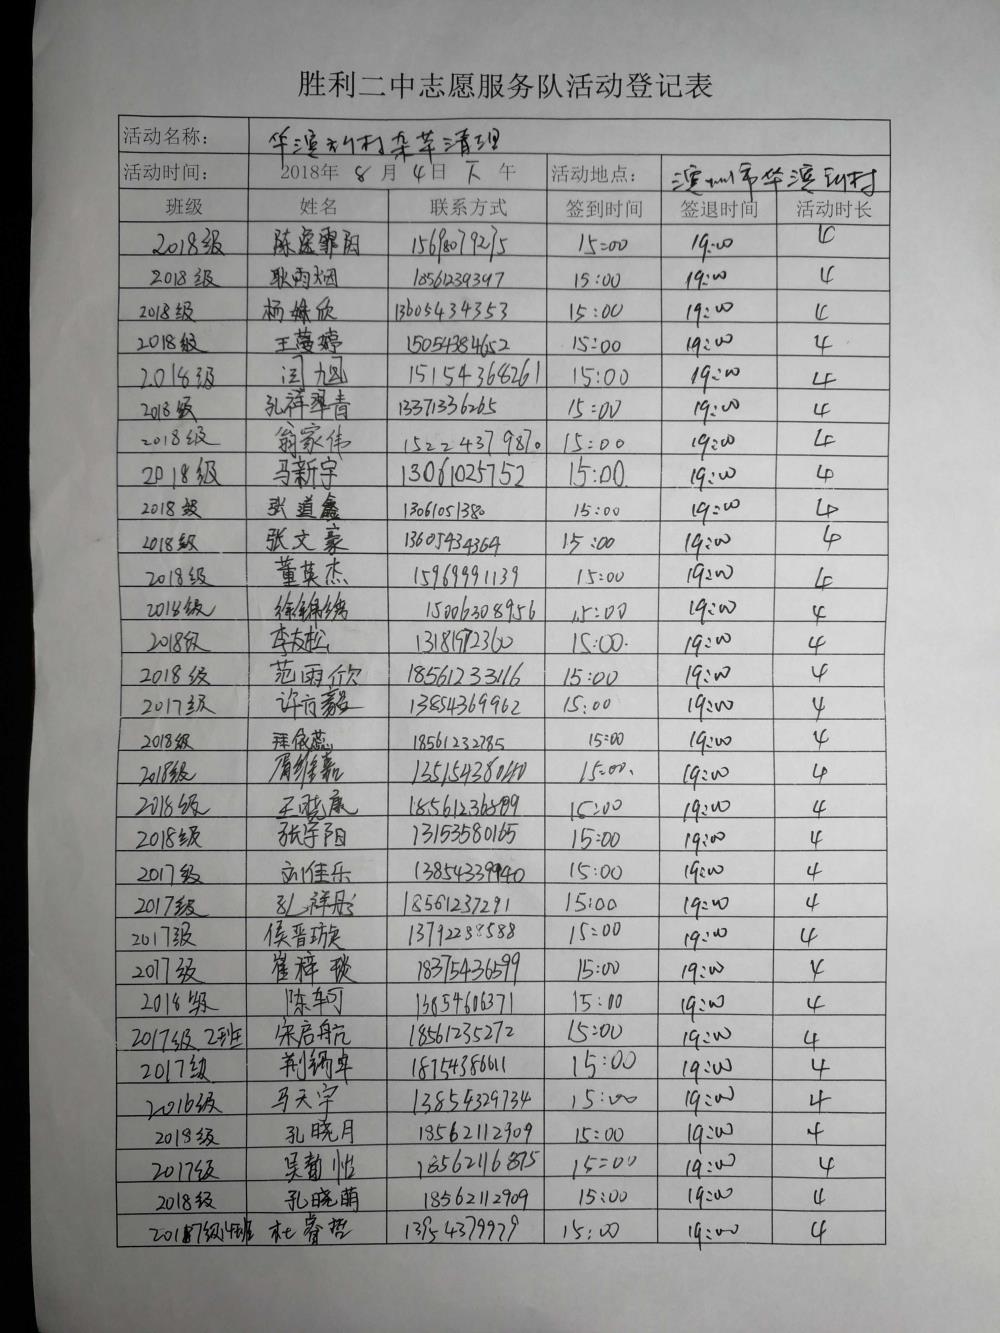 胜利二中志愿服务队活动登记表
活动名称： 华滨新村杂草清理
活动时间： 2018年 8 月 4日 下 午 活动地点： 滨州市华滨新村
班级 姓名 联系方式 签到时间 签退时间 活动时长
2018级 陈 霏阳 15:00 19:00 4
2018级 耿雨烟 18561239397 15:00 19:00 4
2018级 杨姝欣 13605434353 15:00 19:00 4
2018级 王蔓婷 15054384652 15:00 19:00 4
2018级 闫旭 15154368261 15:00 19:00 4
2018级 孔祥翠青 13371336265 15:00 19:00 4
2018级 翁家伟 15224379870 15:00 19:00 4
2018级 马新宇 13061025752 15:00 19:00 4
2018级 张道鑫 13061051380 15:00 19:00 4
2018级 张文豪 13605434364 15:00 19:00 4
2018级 董英杰 15969991139 15:00 19:00 4
2018级 徐锦绣 15006308956 15:00 19:00 4
2018级 李友松 13181972360 15:00 19:00 4
2018级 范雨欣 18561233116 15:00 19:00 4
2017级 许方毅 13854369962 15:00 19:00 4
2018级 拜依蕊 18561232785 15:00 19:00 4
2018级 胥维嘉 13515438040 15:00 19:00 4
2018级 王晓康 15:00 19:00 4
2018级 张宇阳 13153580165 15:00 19:00 4
2017级 刘佳乐 13854339940 15:00 19:00 4
2017级 孔祥彤 18561237291 15:00 19:00 4
2017级 侯晋璇 13792238588 15:00 19:00 4
2017级 崔梓琰 18375436599 15:00 19:00 4
2018级 陈轲 13854606371 15:00 19:00 4
2017级2班 宋启航 18561235272 15:00 19:00 4
2017级 荆 18754386611 15:00 19:00 4
2016级 马天宇 13854329734 15:00 19:00 4
2018级 孔晓月 18562112909 15:00 19:00 4
2017级 吴 怡 18562116875 15:00 19:00 4
2018级 孔晓萌 18562112909 15:00 19:00 4
杜睿哲 13954379929 15:00 19:00 4